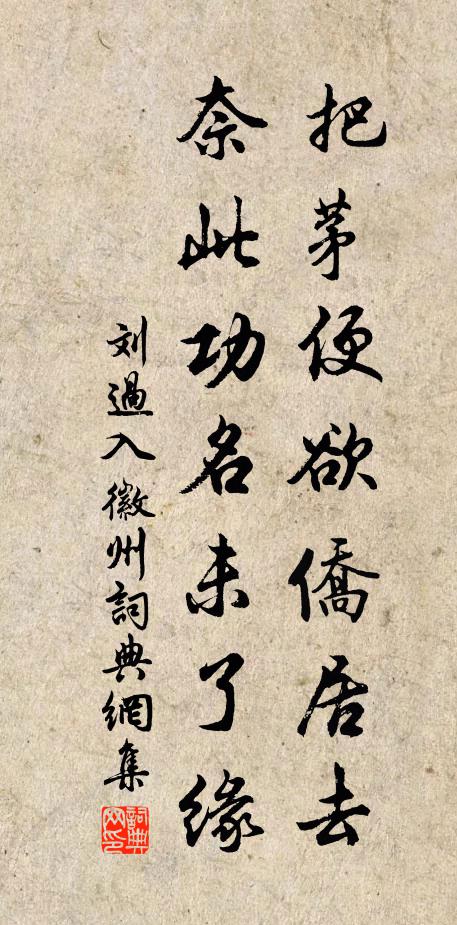 把茅便欲僑居去
奈此功名未了緣
刘過入徽州詞典網集
詞典网印